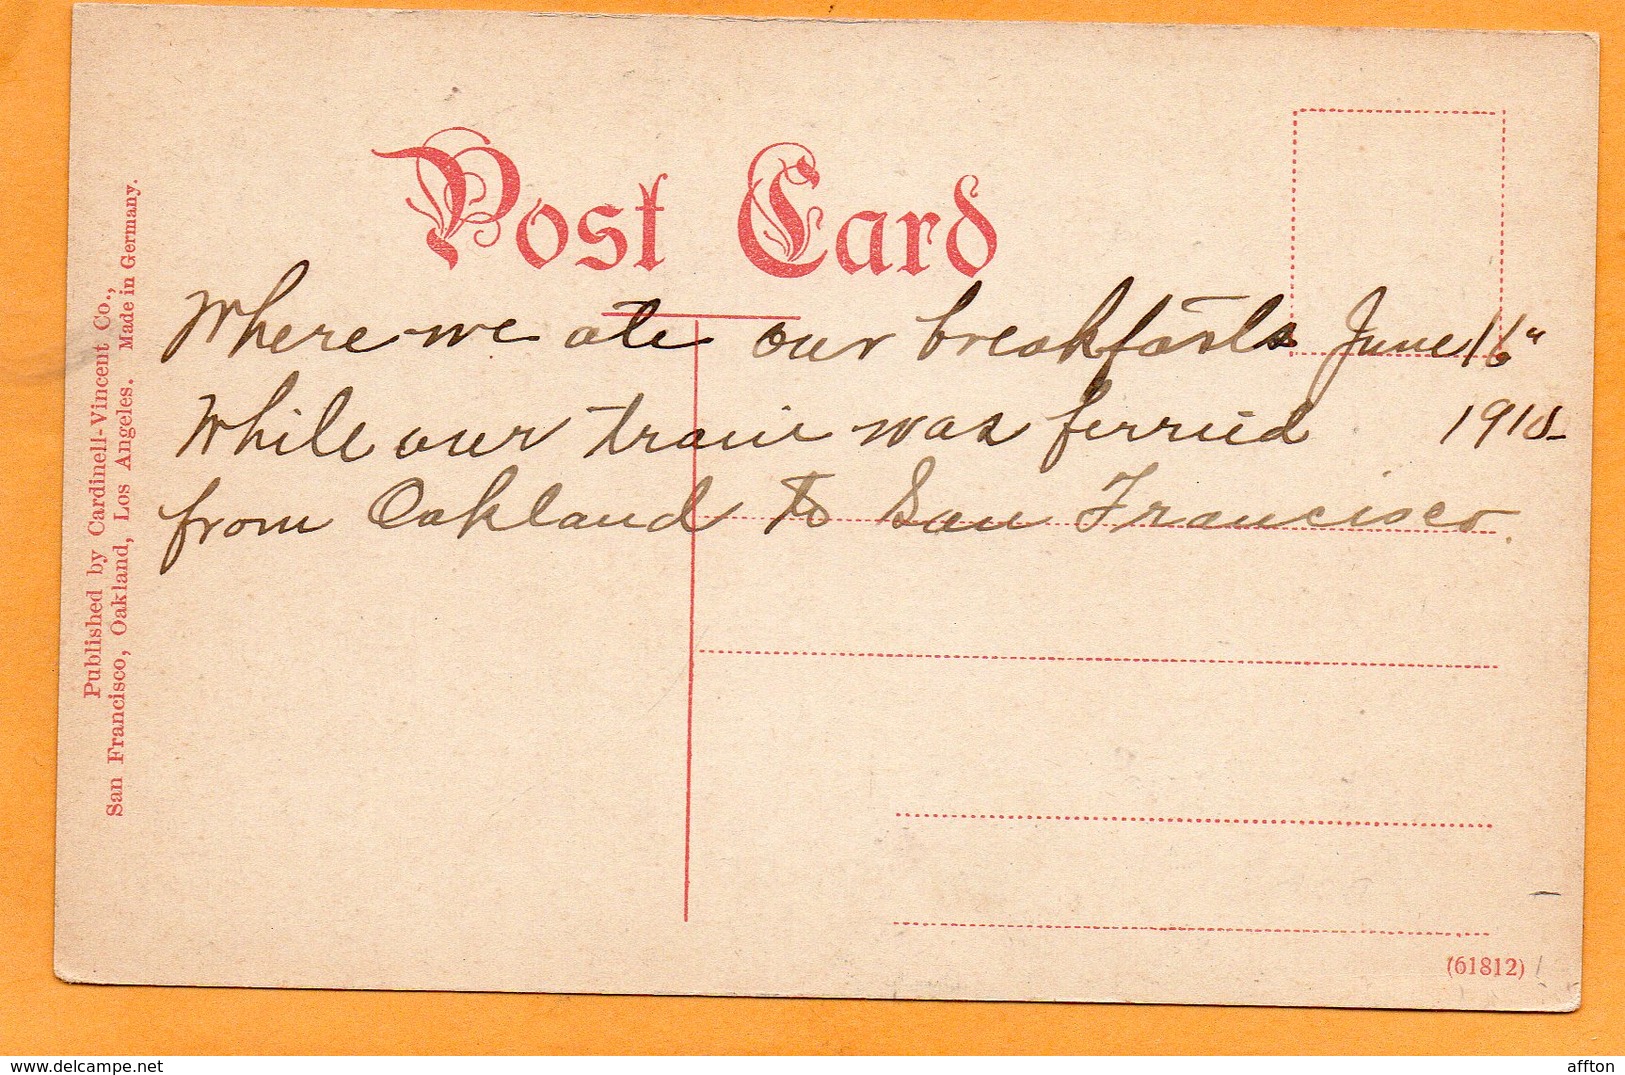 Post Card
Where we ate our breakfasts June 16"
While our train was ferried 1910
from Oakland to San Francisco.
Published by Cardinell-Vincent Co.,
San Francisco, Oakland, Los Angeles. Made in Germany.
(61812)
delcampe.net
affton